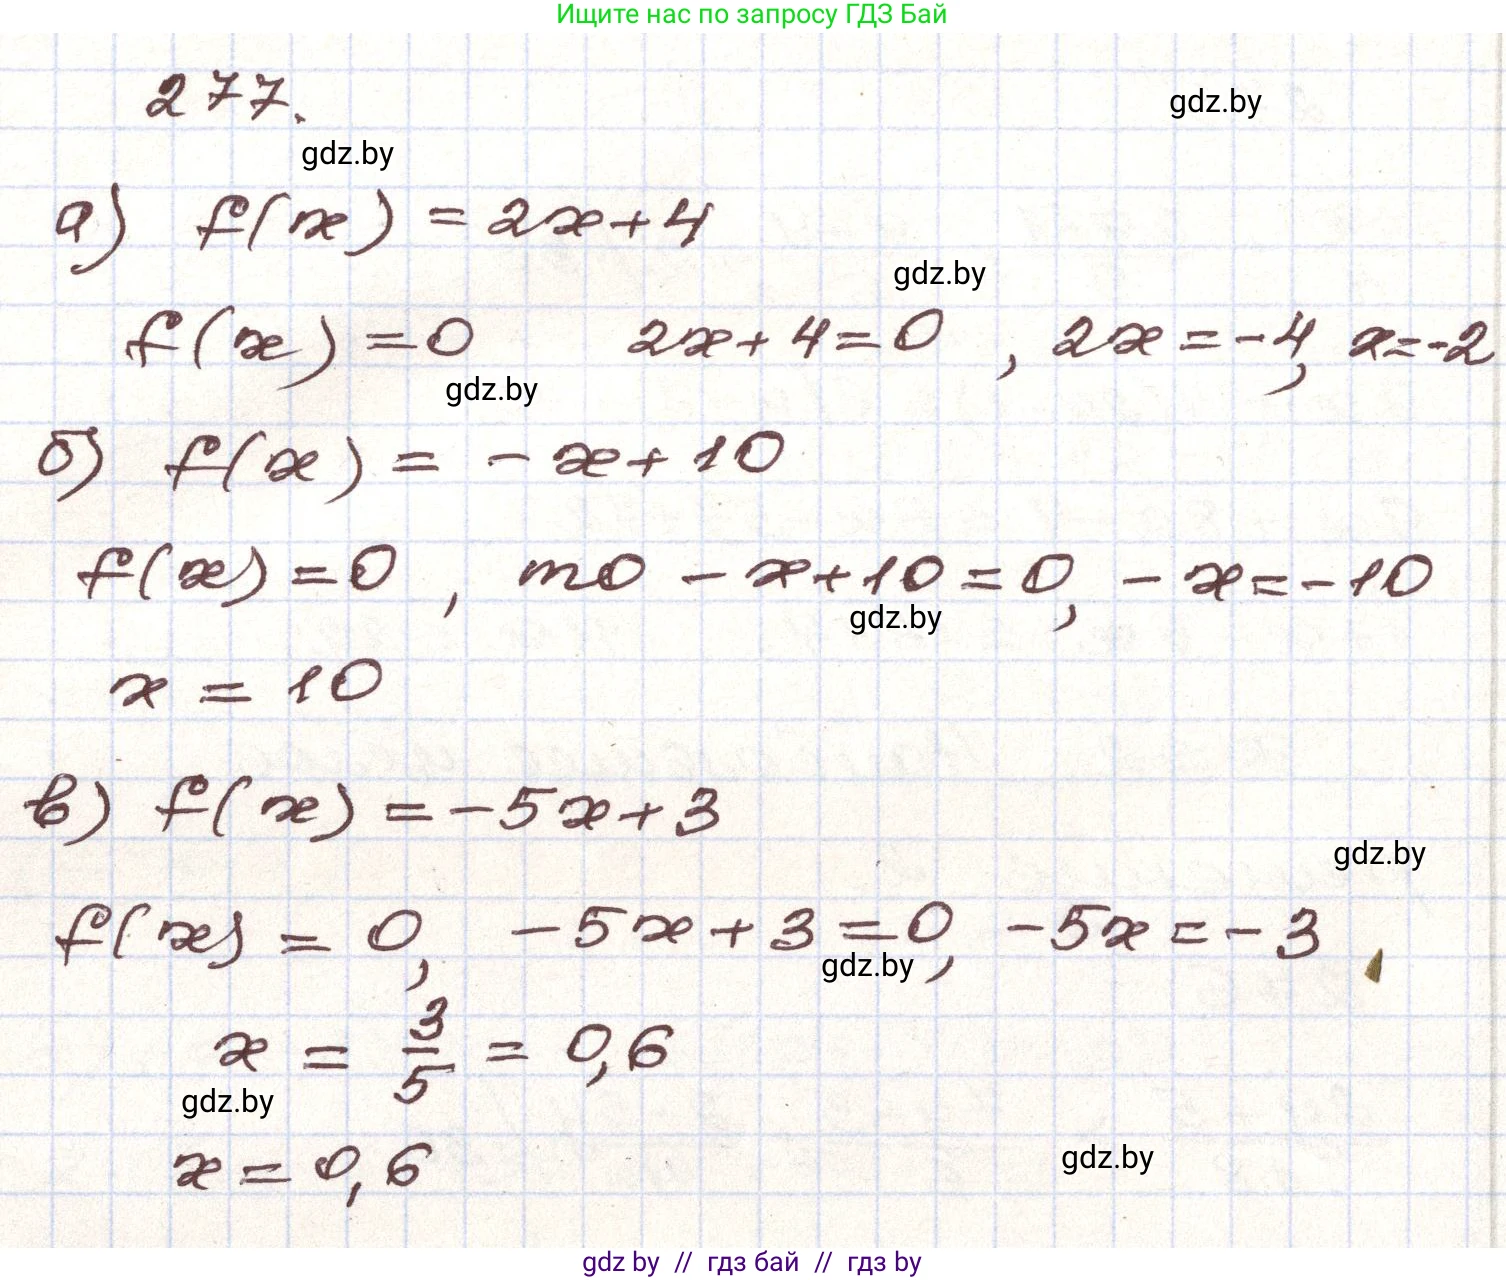 Ищите нас по запросу ГДЗ Бай
277.
gdz.by
gdz.by
а) f(x) = 2x+4
gdz.by
f(x)=0 2x+4=0 , 2x=-4, x=-2
gdz.by
б) f(x) = -x+10
f(x)=0 , то -x+10=0, -x=-10
gdz.by
x = 10
в) f(x) = -5x+3
gdz.by
f(x) = 0, -5x+3=0, -5x=-3,
gdz.by
x = 3/5 = 0,6
gdz.by
x=0,6
gdz.by
gdz by // гдз бай // гдз by